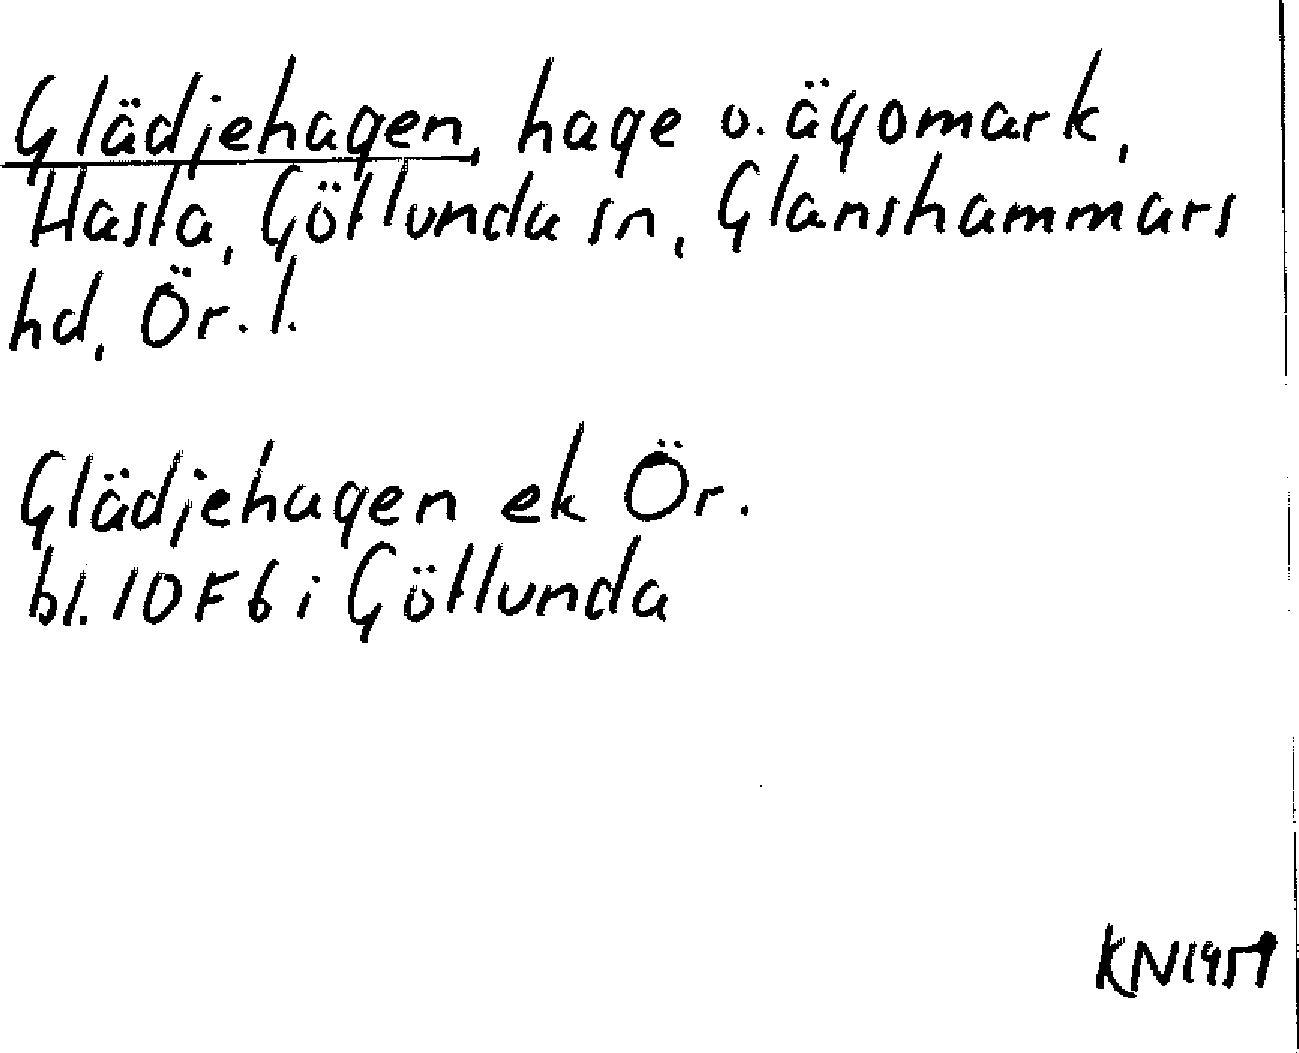 Glädjehagen, hage o. ägomark,
Hasta, Götlunda sn, Glanshammars
hd, Ör. l.
Glädjehagen ek Ör.
bl. 10F6 i Götlunda
KN 1959